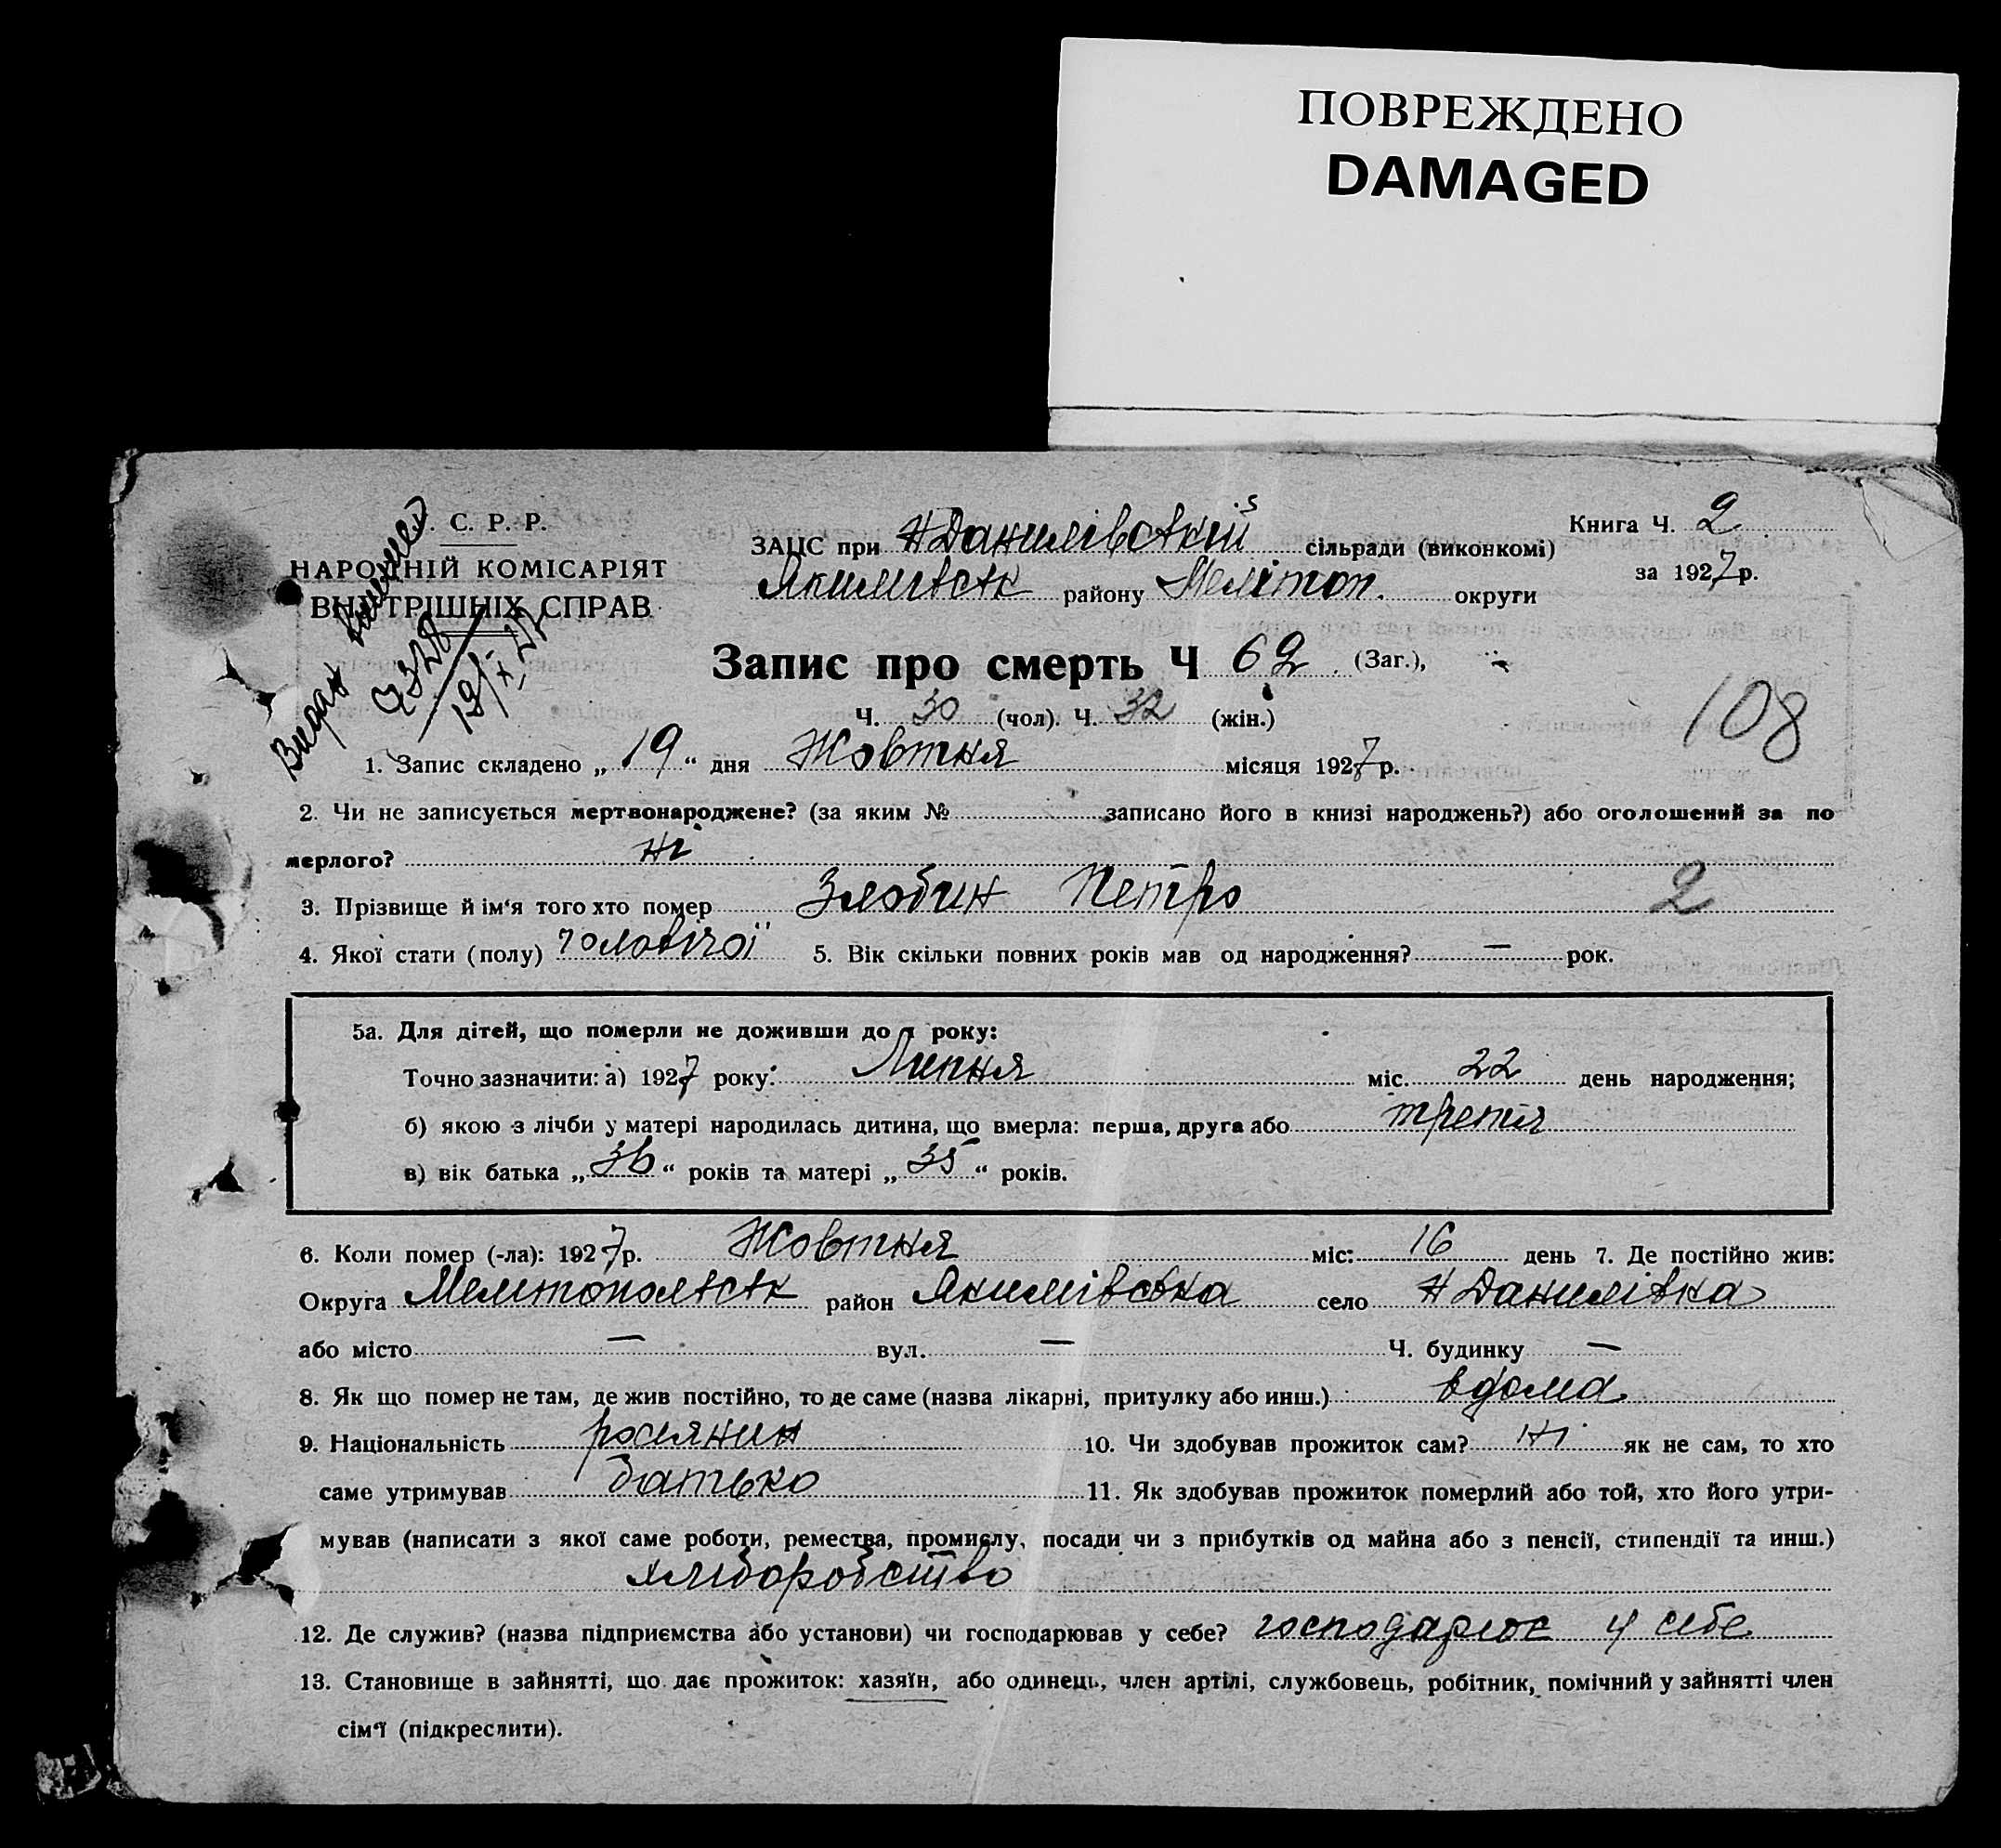 ПОВРЕЖДЕНО
DAMAGED
. С. Р. Р.
НАРОДНІЙ КОМІСАРІЯТ
ВНУТРІШНІХ СПРАВ
Видан
19/X 27
ЗАГС при Н Данилівській сільради (виконкомі)
Якимівськ району Мелітоп. округи
Книга Ч. 2
за 1927 р.
Запис про смерть Ч 62 (Заг.),
Ч. 30 (чол). Ч. 32 (жін.)
108
1. Запис складено „ 19 “ дня Жовтня місяця 1927 р.
2. Чи не записується мертвонароджене? (за яким № записано його в книзі народжень?) або оголошений за по
мерлого? ні
3. Прізвище й ім‘я того хто помер Злобин Петро 2
4. Якої стати (полу) чоловічої 5. Вік скільки повних років мав од народження? — рок.
5а. Для дітей, що померли не доживши до 1 року:
Точно зазначити: а) 1927 року: Липня міс. 22 день народження;
б) якою з лічби у матері народилась дитина, що вмерла: перша, друга або третя
в) вік батька „ 36 “ років та матері „ 35 “ років.
6. Коли помер (-ла): 1927 р. Жовтня міс: 16 день 7. Де постійно жив:
Округа Мелітопольськ район Якимівська село Н Данилівка
або місто — вул. — Ч. будинку —
8. Як що помер не там, де жив постійно, то де саме (назва лікарні, притулку або инш.) вдома
9. Національність росіянин 10. Чи здобував прожиток сам? ні як не сам, то хто
саме утримував батько 11. Як здобував прожиток померлий або той, хто його утри-
мував (написати з якої саме роботи, ремества, промислу, посади чи з прибутків од майна або з пенсії, стипендії та инш.)
хліборобство
12. Де служив? (назва підприємства або установи) чи господарював у себе? господарює у себе
13. Становище в зайнятті, що дає прожиток: хазяїн, або одинець, член артілі, службовець, робітник, помічний у зайнятті член
сім‘ї (підкреслити).